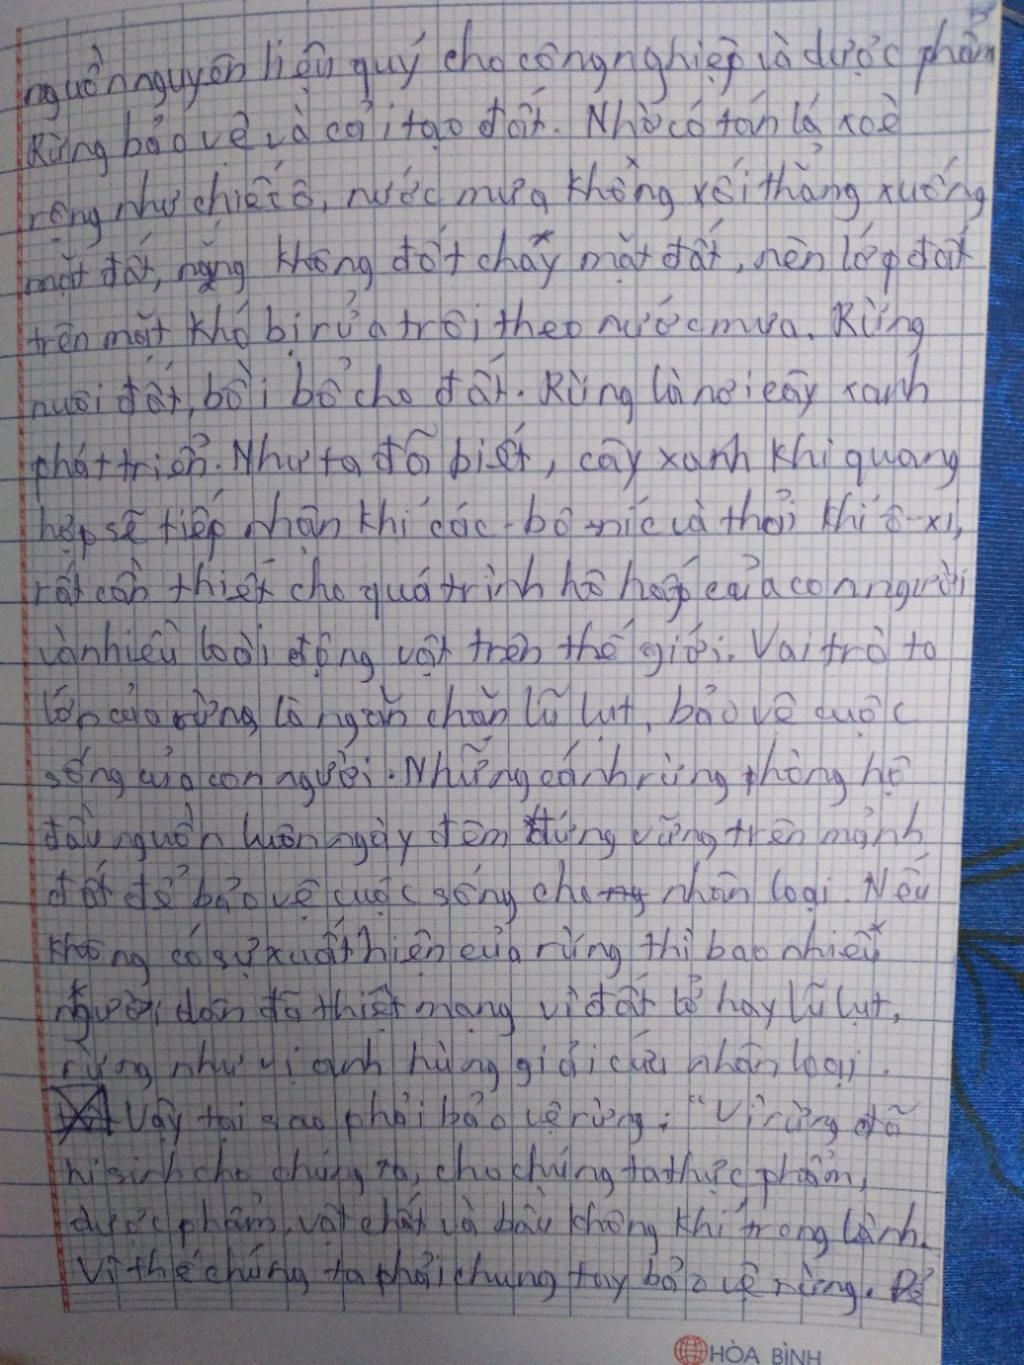 nguồn nguyên liệu quý cho công nghiệp và dược phẩm
Rừng bảo vệ và cải tạo đất. Nhờ có tán lá xoè
rộng như chiếc ô, nước mưa không xối thẳng xuống
mặt đất, nắng không đốt cháy mặt đất, nên lớp đất
trên mặt khó bị rửa trôi theo nước mưa. Rừng
nuôi đất, bồi bổ cho đất. Rừng là nơi cây xanh
phát triển. Như ta đã biết, cây xanh khi quang
hợp sẽ tiếp nhận khí các-bô-níc và thải khí ô-xi,
rất cần thiết cho quá trình hô hấp của con người
và nhiều loài động vật trên thế giới. Vai trò to
lớn của rừng là ngăn chặn lũ lụt, bảo vệ cuộc
sống của con người. Những cánh rừng phòng hộ
đầu nguồn luôn ngày đêm đứng vững trên mảnh
đất để bảo vệ cuộc sống cho nhân loại. Nếu
không có sự xuất hiện của rừng thì bao nhiêu
người dân đã thiệt mạng vì đất lở hay lũ lụt,
rừng như vị anh hùng giải cứu nhân loại.
Vậy tại sao phải bảo vệ rừng: "Vì rừng đã
hi sinh cho chúng ta, cho chúng ta thực phẩm,
dược phẩm, vật chất và bầu không khí trong lành.
Vì thế chúng ta phải chung tay bảo vệ rừng. Để
HÒA BÌNH